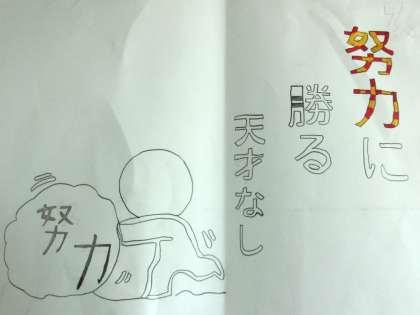 努力に
勝る
天才なし
努力